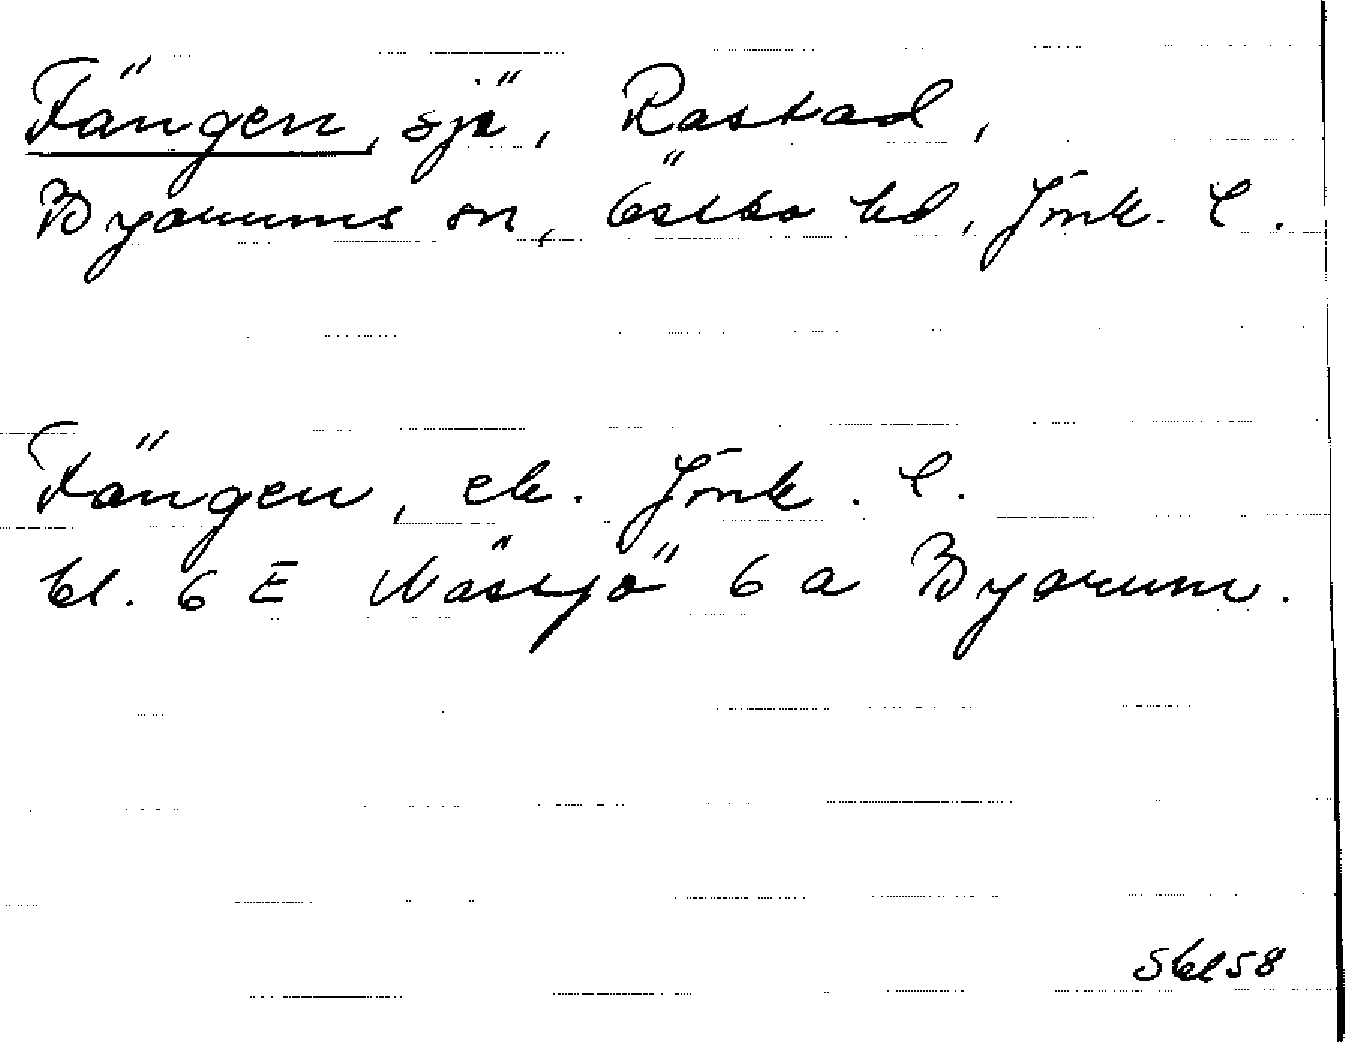 Fängen, sjö, Rastad,
Byarums sn, Östbo hd, Jönk. l.
Fängen, ek. Jönk. l.
bl. 6 E Nässjö 6 a Byarum.